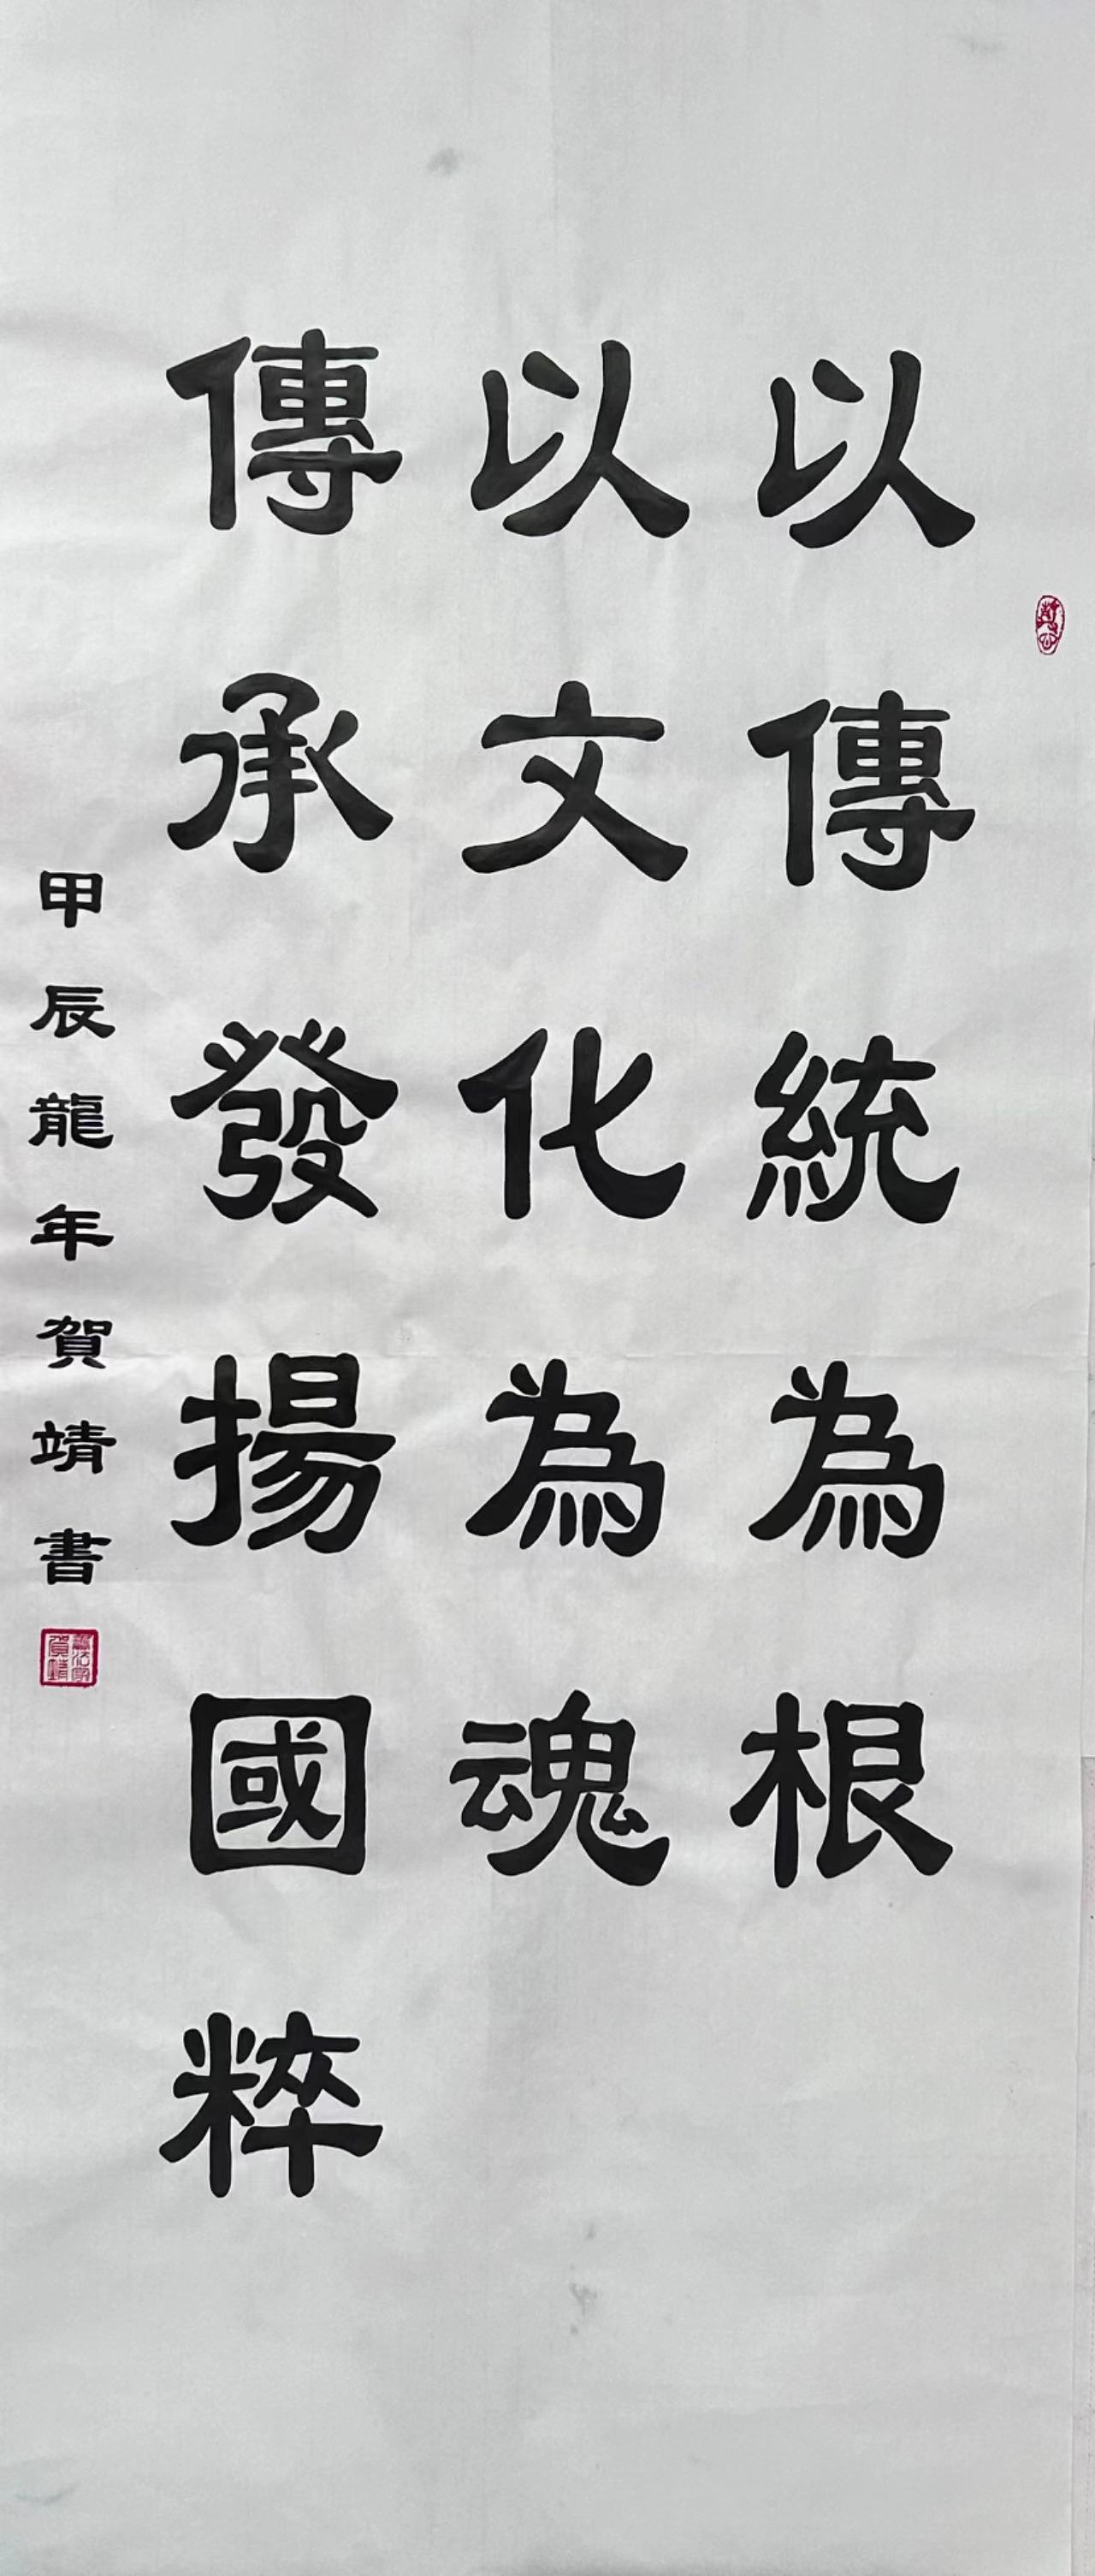 以傳統為根
以文化為魂
傳承發揚國粹
甲辰龍年賀靖書